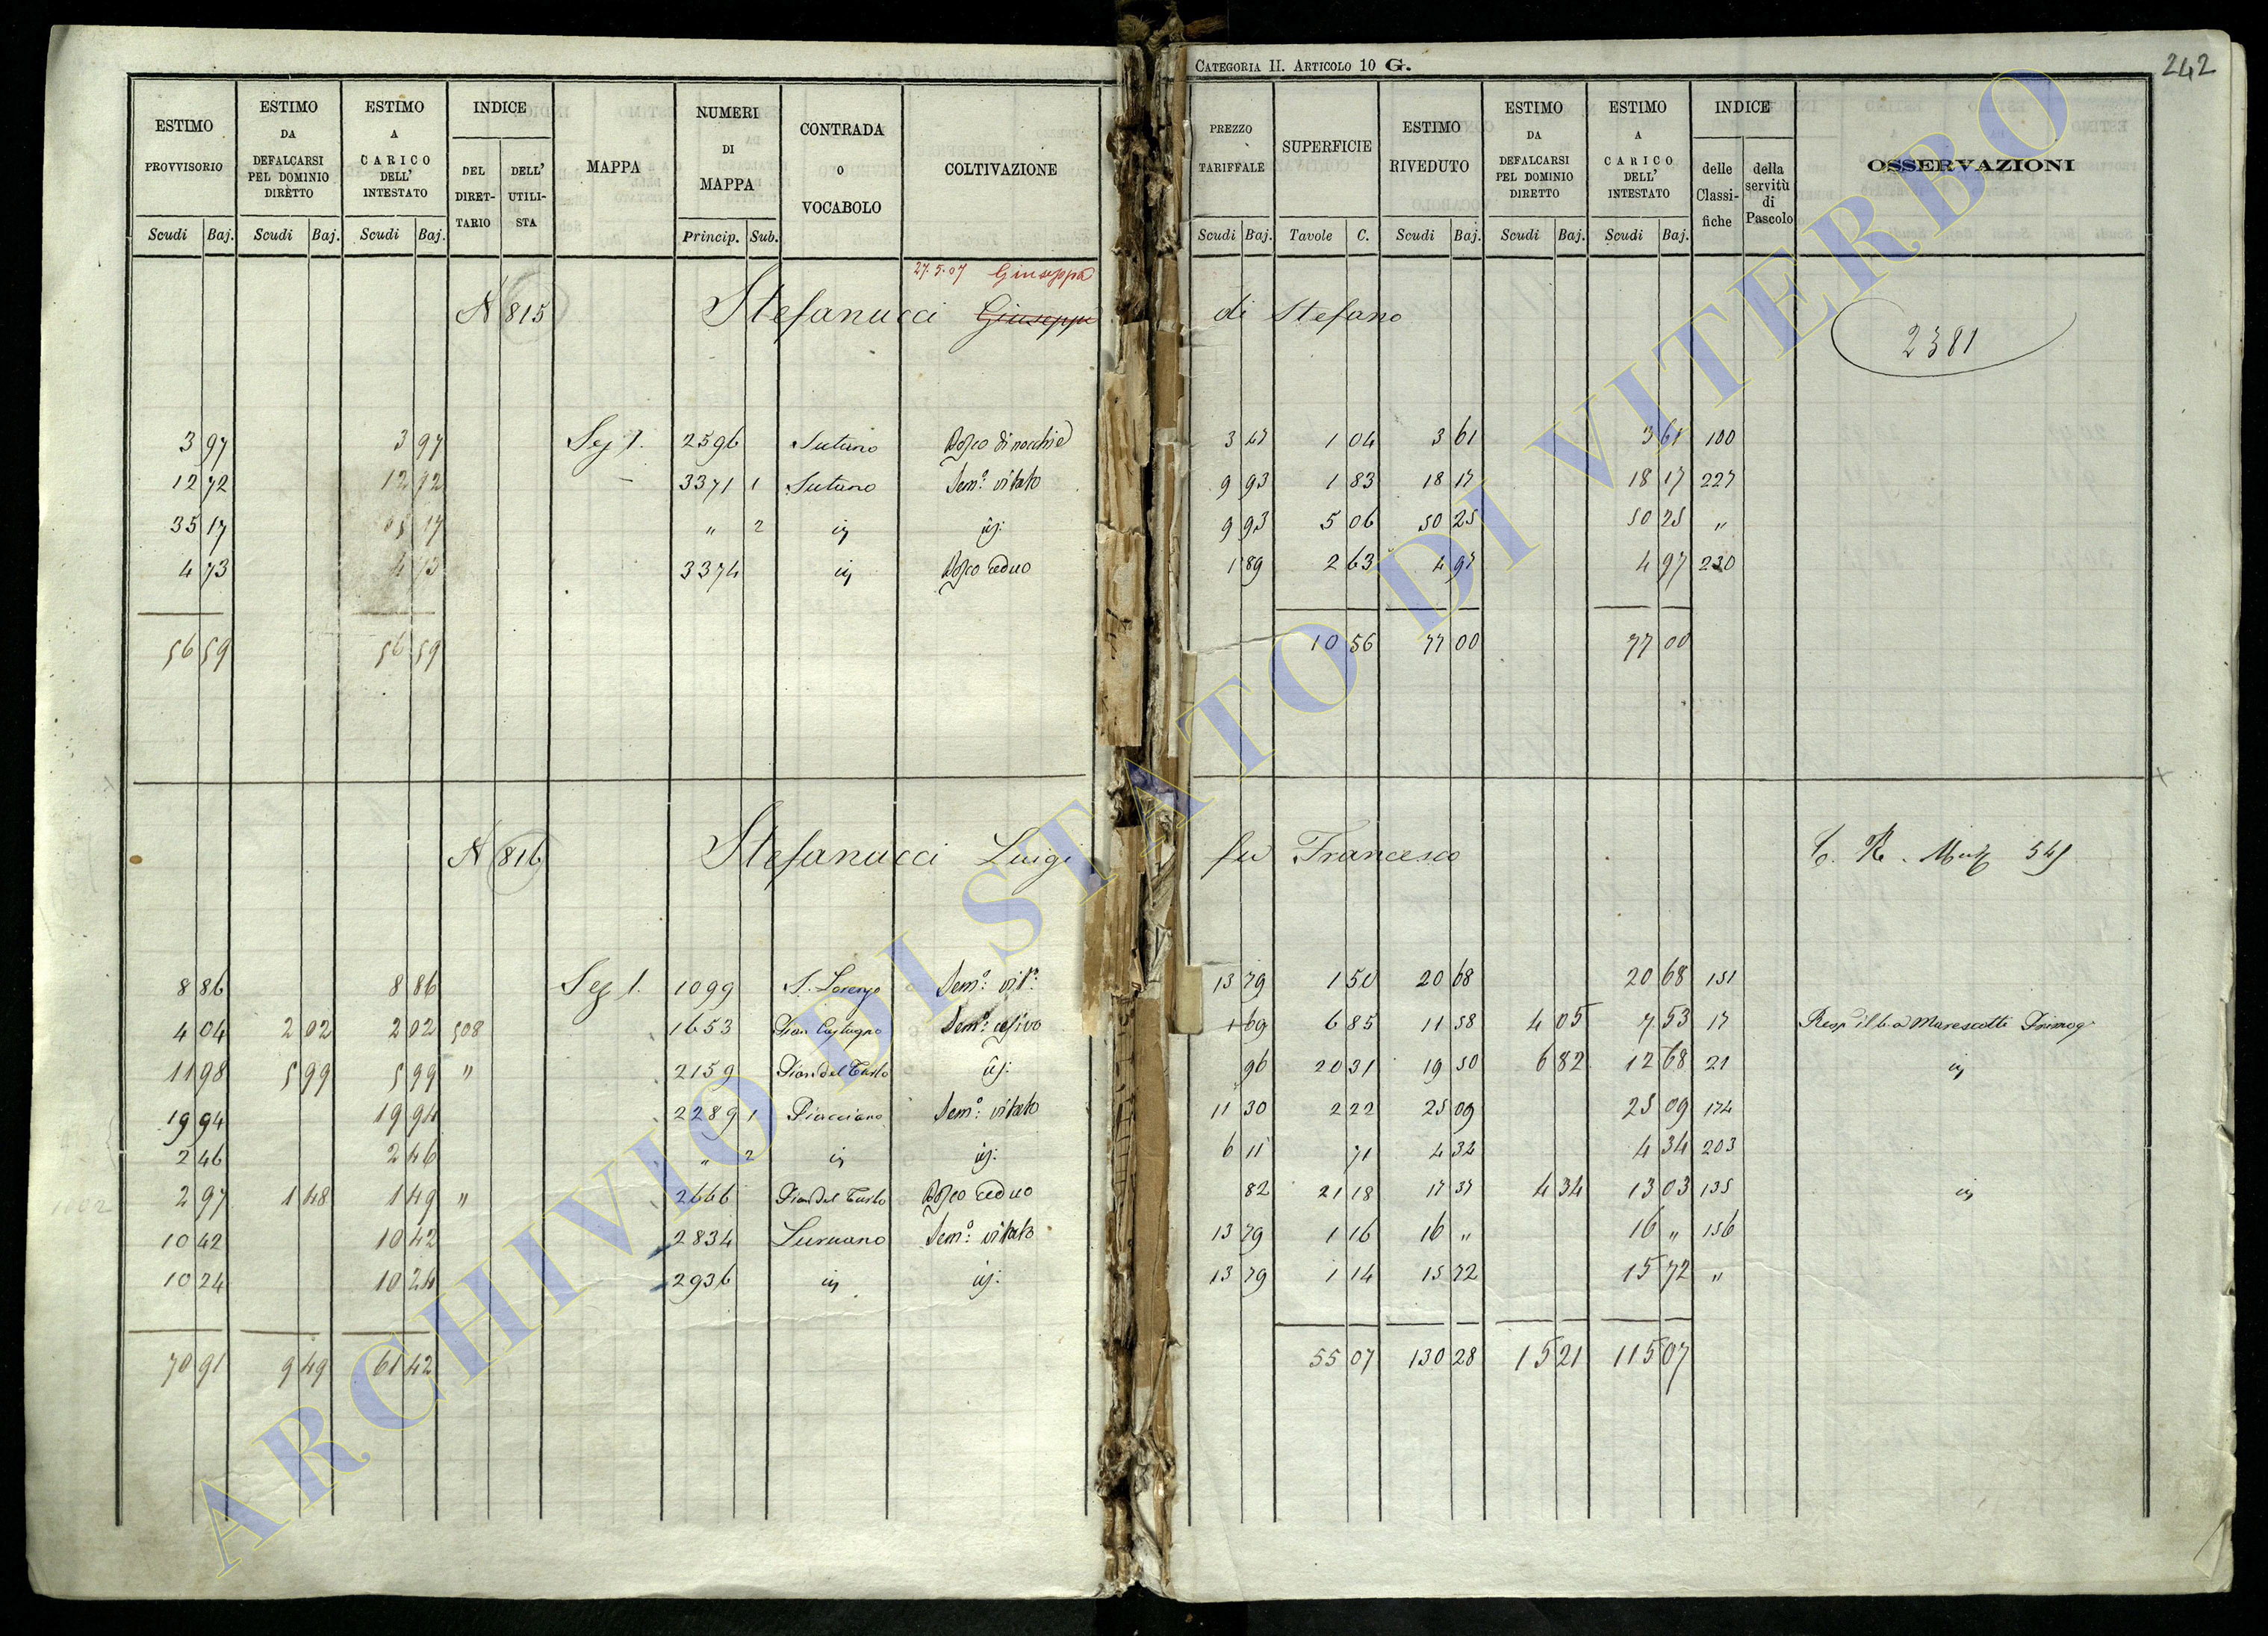 CATEGORIA II. ARTICOLO 10 G.
242
ESTIMO PROVVISORIO
ESTIMO DA DEFALCARSI PEL DOMINIO DIRETTO
ESTIMO A CARICO DELL' INTESTATO
INDICE
DEL DIRET-TARIO
DELL' UTILI-STA
MAPPA
NUMERI DI MAPPA
CONTRADA O VOCABOLO
COLTIVAZIONE
PREZZO TARIFFALE
SUPERFICIE
ESTIMO RIVEDUTO
ESTIMO DA DEFALCARSI PEL DOMINIO DIRETTO
ESTIMO A CARICO DELL' INTESTATO
INDICE
delle Classi-fiche
della servitù di Pascolo
OSSERVAZIONI
Scudi Baj. Scudi Baj. Scudi Baj. Princip. Sub. Scudi Baj. Tavole C. Scudi Baj. Scudi Baj. Scudi Baj.
27.5.07 Giuseppa
N 815 Stefanucci Giuseppe di Stefano
2381
3 97 3 97 Sez 1. 2596 Sutino Bosco di nocchie 3 47 1 04 3 61 3 61 100
12 72 12 72 3371 1 Sutino Sem.º vitato 9 93 1 83 18 17 18 17 227
35 17 35 17 " 2 id. 9 93 5 06 50 25 50 25 "
4 73 4 73 3374 Bosco ceduo 1 89 2 63 4 97 4 97 230
56 59 56 59 10 56 77 00 77 00
N 816 Stefanucci Luigi fu Francesco
8 86 8 86 Sez 1. 1099 S. Lorenzo Sem.º vit.º 13 79 1 50 20 68 20 68 151
4 04 2 02 2 02 508 1653 Pian Castagno Sem.º 1 69 6 85 11 58 4 05 7 53 17 Marescotti
11 98 5 99 5 99 " 2159 Pian del 96 20 31 19 50 6 82 12 68 21
19 94 19 94 2289 1 Piacciano Sem.º vitato 11 30 2 22 25 09 25 09 174
2 46 2 46 " 2 6 11 71 4 34 4 34 203
2 97 1 48 1 49 " 2666 Pian del Bosco ceduo 82 21 18 17 37 4 34 13 03 135
10 42 10 42 2834 Sem.º vitato 13 79 1 16 16 " 16 " 156
10 24 10 24 2936 13 79 1 14 15 72 15 72 "
70 91 9 49 61 42 55 07 130 28 15 21 115 07
ARCHIVIO DI STATO DI VITERBO